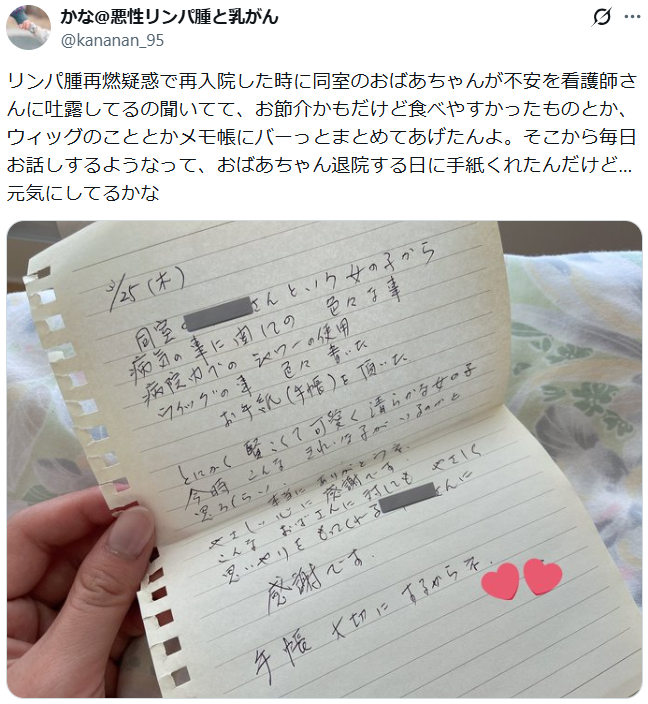 かな@悪性リンパ腫と乳がん
@kananan_95
リンパ腫再燃疑惑で再入院した時に同室のおばあちゃんが不安を看護師さ
んに吐露してるの聞いてて、お節介かもだけど食べやすかったものとか、
ウィッグのこととかメモ帳にバーっとまとめてあげたんよ。そこから毎日
お話しするようなって、おばあちゃん退院する日に手紙くれたんだけど...
元気にしてるかな
3/25 (木)
同室の さんという女の子から
病気の事に関しての 色々な事
病院内でのシャワーの使用
ウィッグの事 色々書いた
お手紙(手帳)を頂いた
とにかく賢こくて可愛く清らかな女の子
今時 こんな きれいな子がいるのかと
思うくらい 本当にありがとうネ
やさしい心に感謝です
こんな おばさんに対しても やさしく
思いやりをもってくれる さんに
感謝です.
手帳 大切にするからネ.